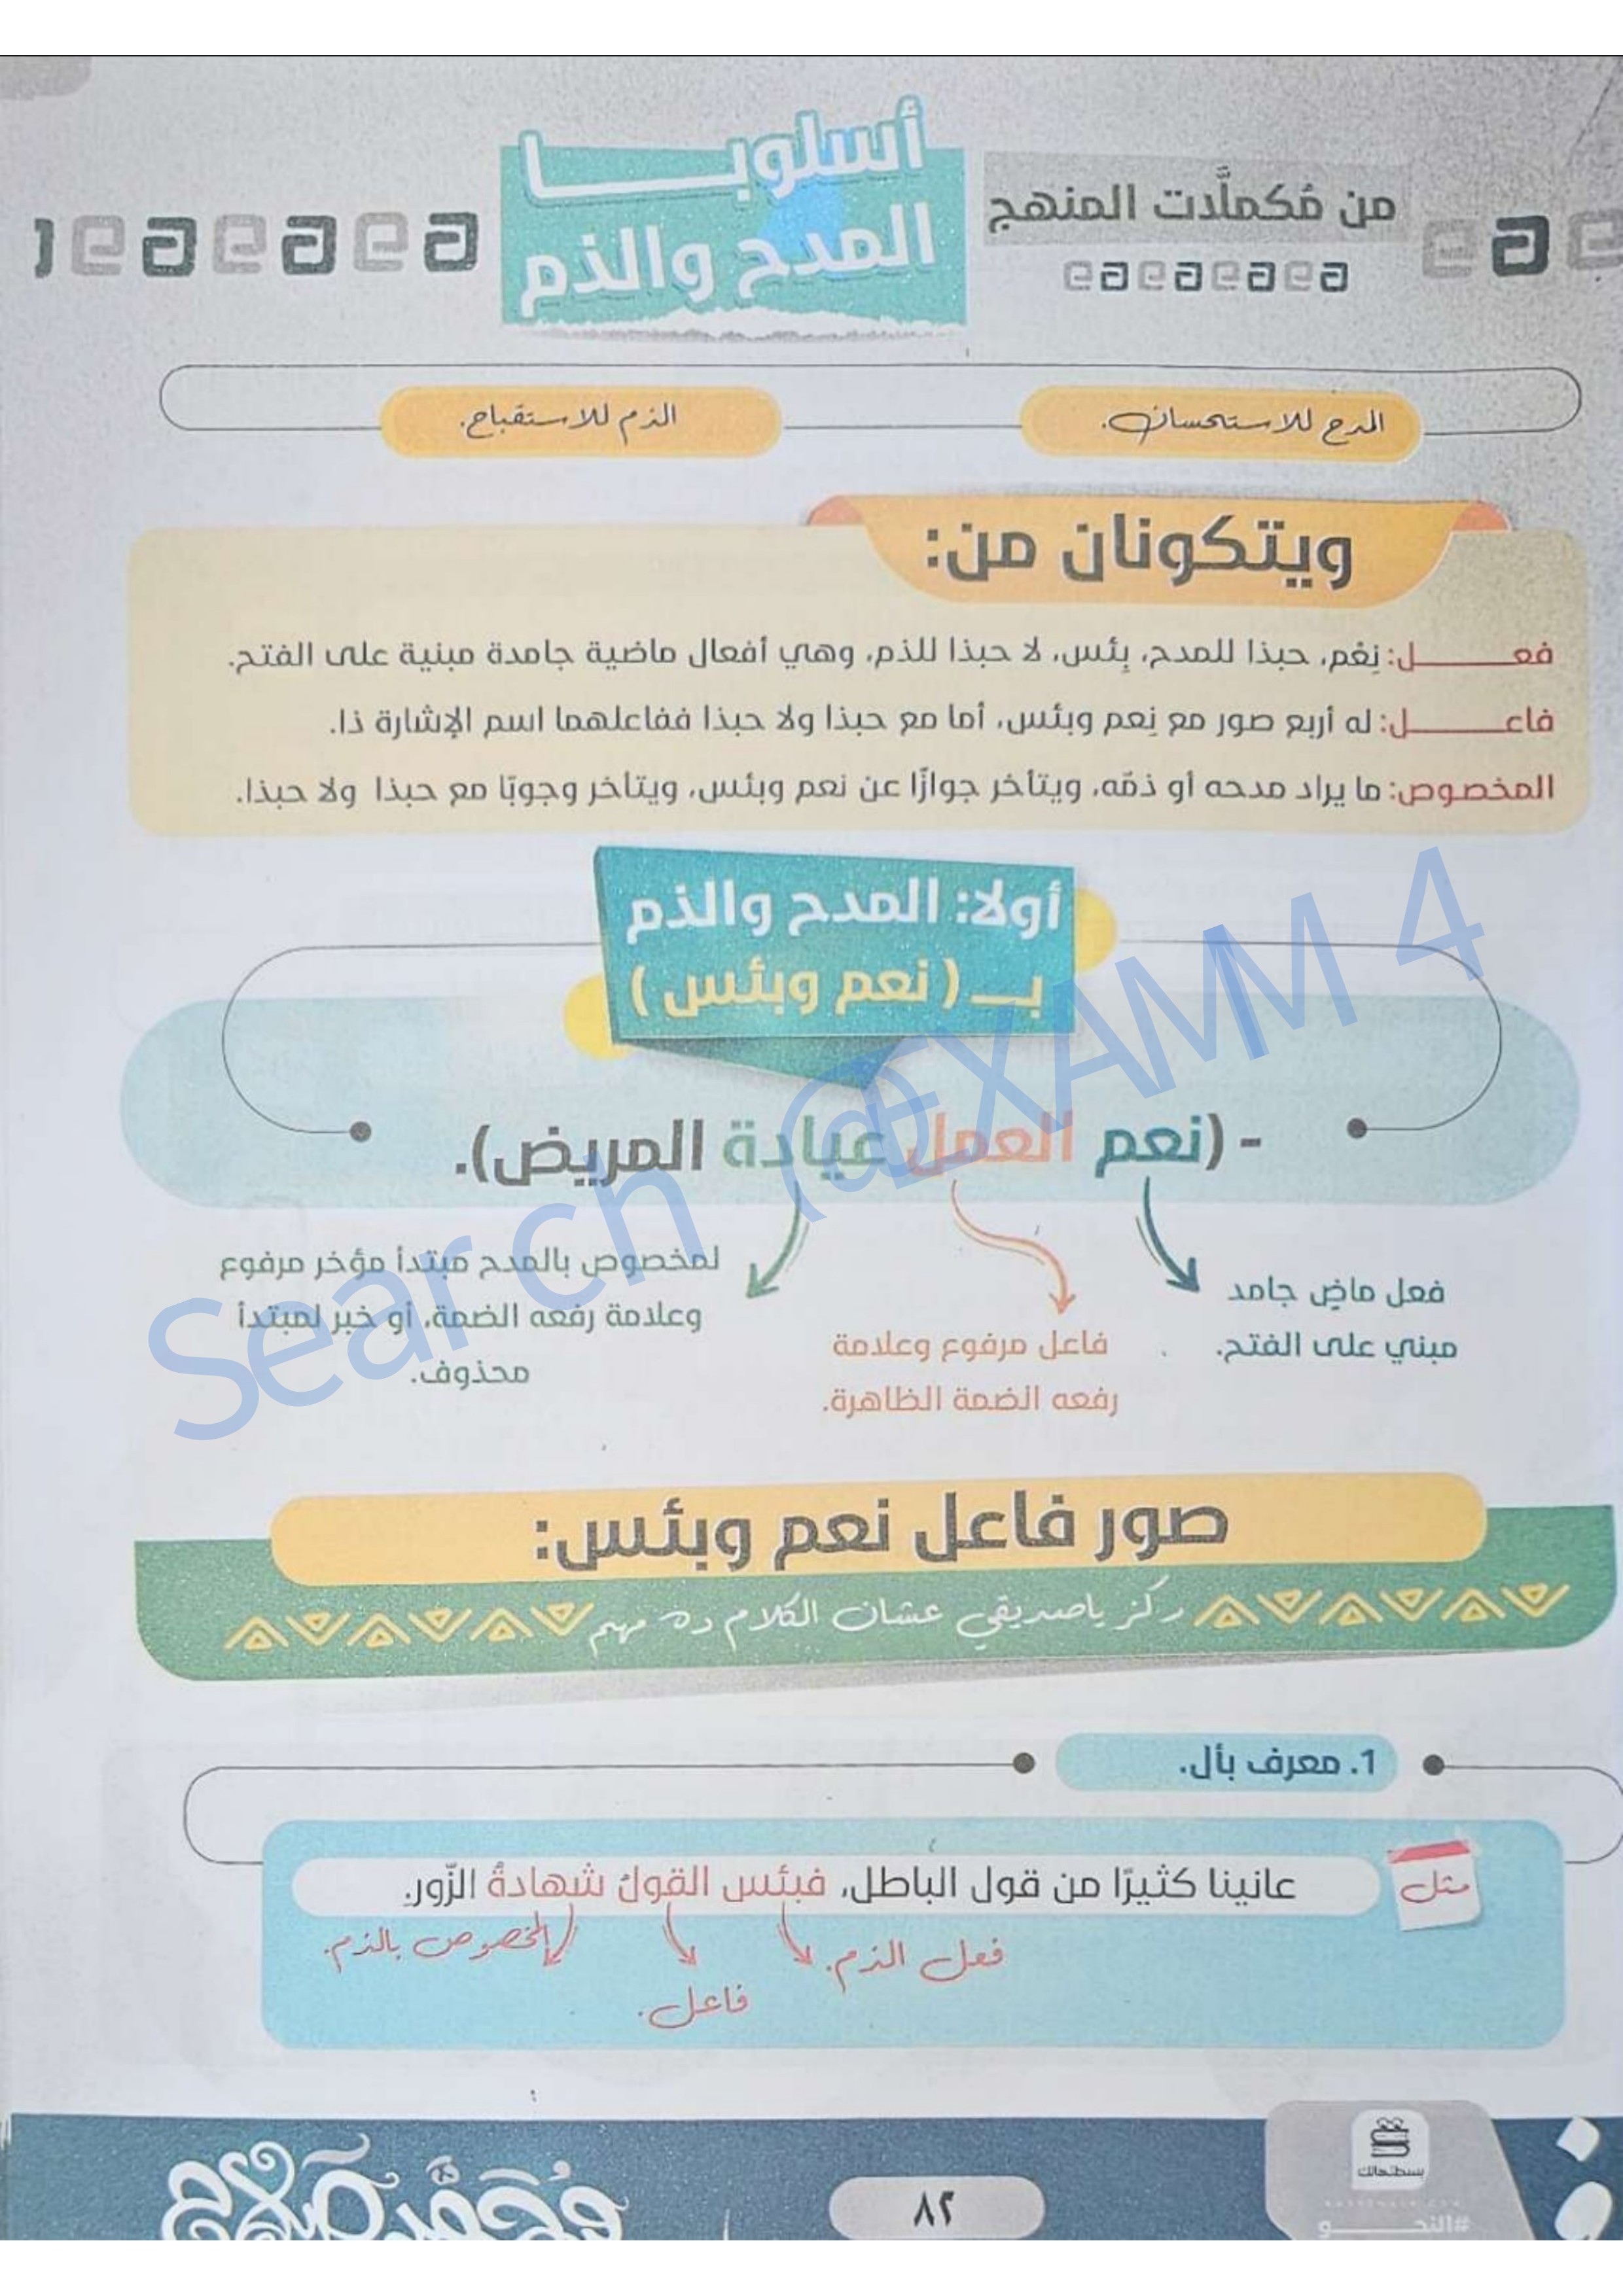 من مُكملَّات المنهج
أسلوبـــا
المدح والذم
المدح للاستحسان.
الذم للاستقباح.
ويتكونان من:
فعـــــل: نِعْم، حبذا للمدح، بِئس، لا حبذا للذم، وهي أفعال ماضية جامدة مبنية على الفتح.
فاعـــــل: له أربع صور مع نِعم وبئس، أما مع حبذا ولا حبذا ففاعلهما اسم الإشارة ذا.
المخصوص: ما يراد مدحه أو ذمّه، ويتأخر جوازًا عن نعم وبئس، ويتأخر وجوبًا مع حبذا ولا حبذا.
أولا: المدح والذم
بــ ( نعم وبئس )
- (نعم العمل عيادة المريض).
فعل ماضٍ جامد
مبني على الفتح.
فاعل مرفوع وعلامة
رفعه الضمة الظاهرة.
لمخصوص بالمدح مبتدأ مؤخر مرفوع
وعلامة رفعه الضمة، أو خبر لمبتدأ
محذوف.
Search @EXAMM 4
صور فاعل نعم وبئس:
ركز ياصديقي عشان الكلام ده مهم
1. معرف بأل.
مثل
عانينا كثيرًا من قول الباطل، فبئس القولُ شهادةُ الزّورِ.
فعل الذم.
فاعل.
المخصوص بالذم.
٨٢
بسطتهالك
#النحـــو